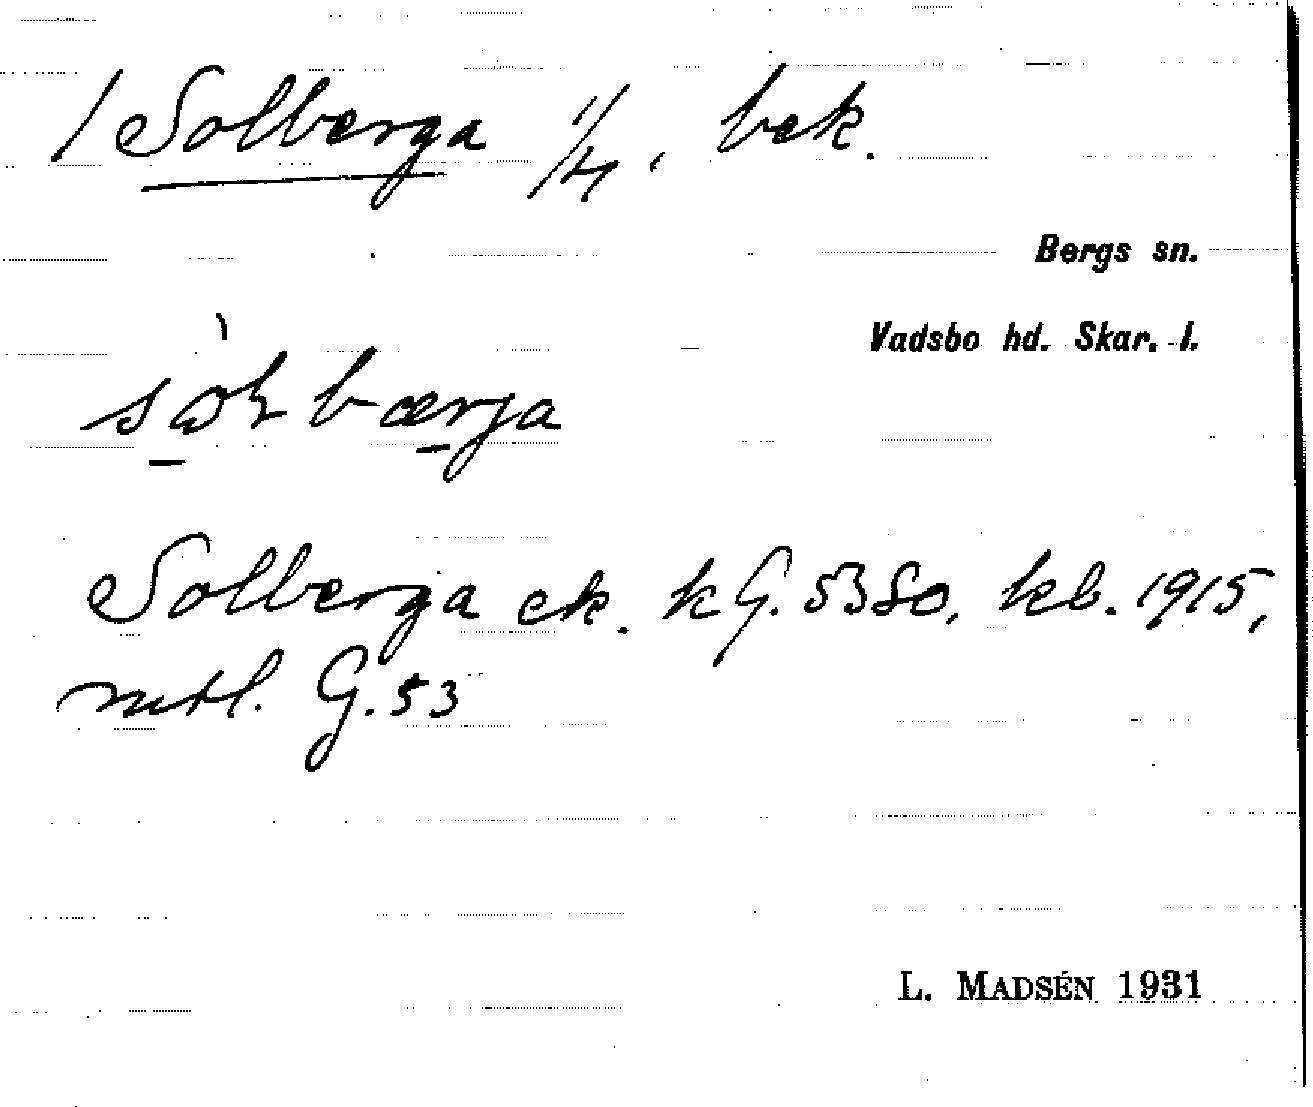 / Solberga 1/4, bek.
Bergs sn.
Vadsbo hd. Skar. l.
Solberga ek. kG. 53So, kb. 1915,
mtl. G. 53
L. MADSÉN 1931